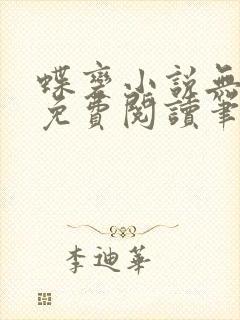 蝶变小説無
免費閱讀筆
李迪華